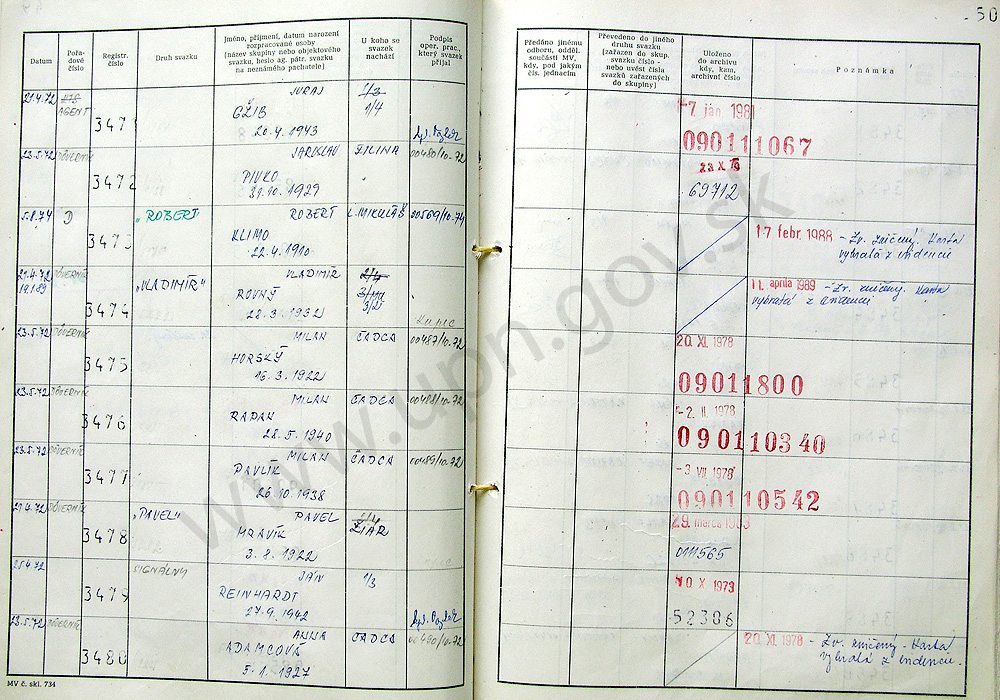 50
Datum
Pořadové číslo
Registr. číslo
Druh svazku
Jméno, příjmení, datum narození rozpracované osoby (název skupiny nebo objektového svazku, heslo ag. pátr. svazku na neznámého pachatele)
U koho se svazek nachází
Podpis oper. prac., který svazek přijal
Předáno jinému odboru, odděl. součásti MV, kdy, pod jakým čís. jednacím
Převedeno do jiného druhu svazku (zařazen do skup. svazku číslo - nebo uvést čísla svazků zařazených do skupiny)
Uloženo do archivu kdy, kam, archivní číslo
Poznámka
21.4.72 AGENT 3471 JURAJ GŽIB 20.4.1943 1/3 1/4
17 ján. 1981 090111067
23.5.72 DÔVERNÍK 3472 JAROSLAV PIVKO 31.10.1929 ŽILINA 00480/10-72
23 X 69712
5.8.74 D 3473 "ROBERT" ROBERT KLIMO 22.4.1910 L. MIKULÁŠ 00569/10-74
17 febr. 1988 - Zv. zničený. Karta
vybratá z evidencie
21.4.72 DÔVERNÍK 3474 "VLADIMÍR" VLADIMÍR ROVNÝ 28.3.1932 2/4 3/2
11 apríla 1989 - Zv. zničený. Karta
vybratá z evidencii
23.5.72 DÔVERNÍK 3475 MILAN HORSKÝ 16.3.1922 ČADCA 00487/10-72
20. XI. 1978 09011800
23.5.72 DÔVERNÍK 3476 MILAN RAPAN 28.5.1940 ČADCA 00488/10-72
-2. II. 1978 090110340
23.5.72 DÔVERNÍK 3477 MILAN PAVLÍK 26.10.1938 ČADCA 00489/10-72
-3. VII. 1978 090110542
21.4.72 DÔVERNÍK 3478 "PAVEL" PAVEL MRAVÍK 3.8.1922 2/4 ŽIAR
29. marca 011565
25.4.72 3479 SIGNÁLNY JÁN REINHARDT 27.9.1942 1/3
10. X. 1973 52386
23.5.72 DÔVERNÍK 3480 ANNA ADAMCOVÁ 5.1.1927 ČADCA 00490/10-72
20. XI. 1978 - Zv. zničený. Karta
vybratá z evidencie.
MV č. skl. 734
www.upn.gov.sk